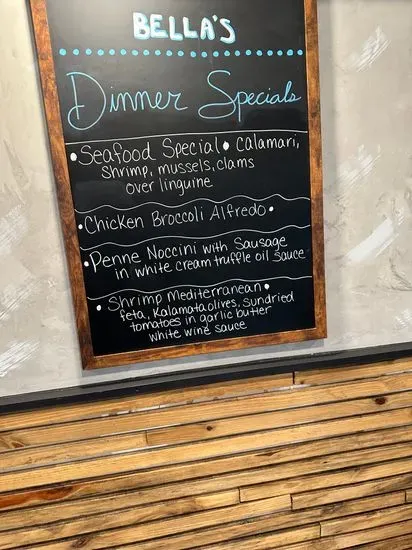 BELLA'S
Dinner Specials
• Seafood Special • Calamari,
Shrimp, mussels, clams
over linguine
• Chicken Broccoli Alfredo •
• Penne Noccini with Sausage
in white cream truffle oil sauce
• Shrimp Mediterranean •
feta, Kalamata olives, sundried
tomatoes in garlic butter
white wine sauce